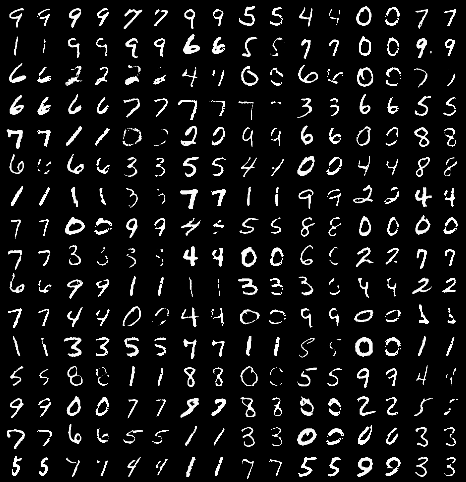 9 9 9 9 7 7 9 9 5 5 4 4 0 0 7 7
1 1 9 9 9 9 6 6 5 5 7 7 0 0 9 9
6 6 2 2 2 2 4 4 0 0 6 6 0 0 7 7
6 6 6 6 7 7 7 7 7 3 3 6 6 5 5
7 7 1 1 0 0 2 0 9 9 6 6 0 0 8 8
6 6 6 6 3 3 5 5 4 4 0 0 4 4 8 8
1 1 1 1 3 3 7 7 1 1 9 9 2 2 4 4
7 7 0 0 9 9 4 4 5 5 8 8 0 0 0 0
7 7 3 3 3 3 4 4 0 0 6 6 2 2 7 7
6 6 9 9 1 1 1 1 3 3 3 3 4 4 2 2
7 7 4 4 0 0 4 4 0 0 9 9 0 0 1 1
1 1 3 3 5 5 7 7 1 1 5 5 0 0 1 1
5 5 8 8 1 1 8 8 0 0 5 5 9 9 4 4
9 9 0 0 7 7 9 9 8 8 0 0 2 2 5 5
7 7 6 6 5 5 1 1 3 3 0 0 0 0 3 3
5 5 7 7 4 4 1 1 7 7 5 5 9 9 3 3